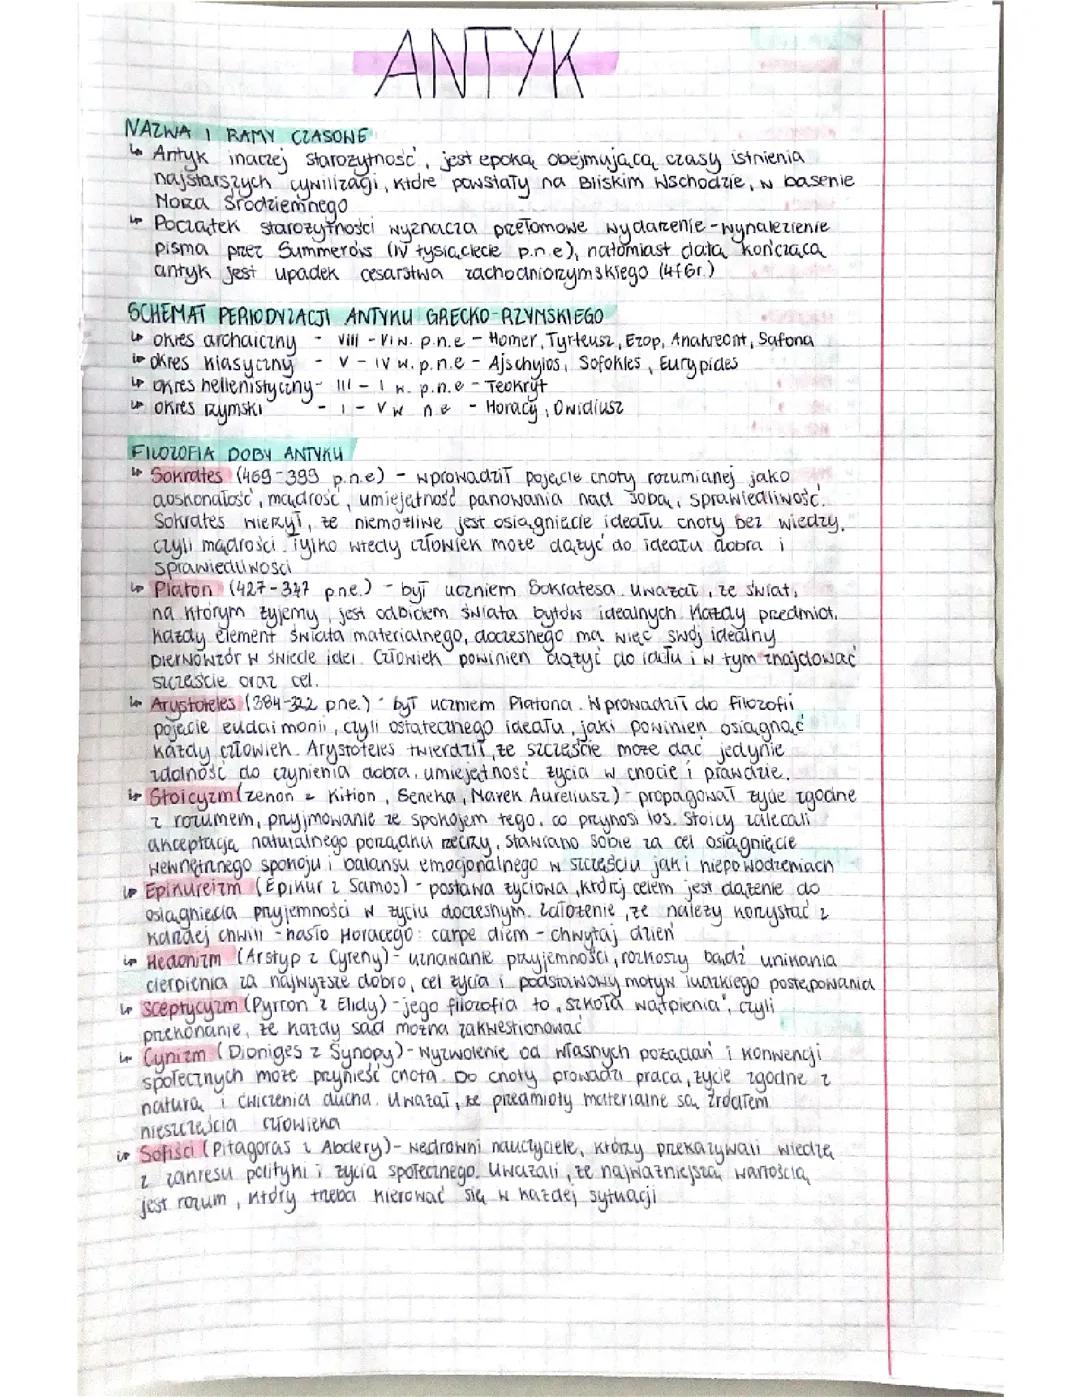 ANTYK
NAZWA I RAMY CZASOWE
↳ Antyk inaczej starożytność, jest epoką obejmującą czasy istnienia
najstarszych cywilizacji, które powstały na Bliskim Wschodzie, w basenie
Morza Śródziemnego
↳ Początek starożytności wyznacza przełomowe wydarzenie - wynalezienie
pisma przez Summerów (IV tysiąclecie p.n.e), natomiast datą kończącą
antyk jest upadek cesarstwa zachodniorzymskiego (476r.)
SCHEMAT PERIODYZACJI ANTYKU GRECKO-RZYMSKIEGO
↳ okres archaiczny - VIII - VI w. p.n.e - Homer, Tyrteusz, Ezop, Anakreont, Safona
↳ okres klasyczny - V - IV w. p.n.e - Ajschylos, Sofokles, Eurypides
↳ okres hellenistyczny - III - I w. p.n.e - Teokryt
↳ okres rzymski - I - V w n.e - Horacy, Owidiusz
FILOZOFIA DOBY ANTYKU
↳ Sokrates (469-399 p.n.e) - wprowadził pojęcie cnoty rozumianej jako
doskonałość, mądrość, umiejętność panowania nad sobą, sprawiedliwość.
Sokrates wierzył, że niemożliwe jest osiągnięcie ideału cnoty bez wiedzy,
czyli mądrości. Tylko wtedy człowiek może dążyć do ideału dobra i
sprawiedliwości
↳ Platon (427-347 p.n.e.) - był uczniem Sokratesa. Uważał, że świat,
na którym żyjemy, jest odbiciem świata bytów idealnych. Każdy przedmiot,
każdy element świata materialnego, doczesnego ma więc swój idealny
pierwowzór w świecie idei. Człowiek powinien dążyć do ideału i w tym znajdować
szczęście oraz cel.
↳ Arystoteles (384-322 p.n.e.) - był uczniem Platona. Wprowadził do filozofii
pojęcie eudaimonii, czyli ostatecznego ideału, jaki powinien osiągnąć
każdy człowiek. Arystoteles twierdził, że szczęście może dać jedynie
zdolność do czynienia dobra, umiejętność życia w cnocie i prawdzie.
↳ Stoicyzm (Zenon z Kition, Seneka, Marek Aureliusz) - propagował życie zgodne
z rozumem, przyjmowanie ze spokojem tego, co przynosi los. Stoicy zalecali
akceptację naturalnego porządku rzeczy. Stawiano sobie za cel osiągnięcie
wewnętrznego spokoju i balansu emocjonalnego w szczęściu jak i niepowodzeniach
↳ Epikureizm (Epikur z Samos) - postawa życiowa, której celem jest dążenie do
osiągnięcia przyjemności w życiu doczesnym. Założenie, że należy korzystać z
każdej chwili - hasło Horacego: carpe diem - chwytaj dzień
↳ Hedonizm (Arstyp z Cyreny) - uznawanie przyjemności, rozkoszy bądź unikania
cierpienia za najwyższe dobro, cel życia i podstawowy motyw ludzkiego postępowania
↳ Sceptycyzm (Pyrron z Elidy) - jego filozofia to „szkoła wątpienia", czyli
przekonanie, że każdy sąd można zakwestionować
↳ Cynizm (Dioniges z Synopy) - wyzwolenie od własnych pożądań i konwencji
społecznych może przynieść cnota. Do cnoty prowadzi praca, życie zgodne z
naturą i ćwiczenia ducha. Uważał, że przedmioty materialne są źródłem
nieszczęścia człowieka
↳ Sofiści (Pitagoras z Abdery) - wędrowni nauczyciele, którzy przekazywali wiedzę
z zakresu polityki i życia społecznego. Uważali, że najważniejszą wartością
jest rozum, który trzeba kierować się w każdej sytuacji